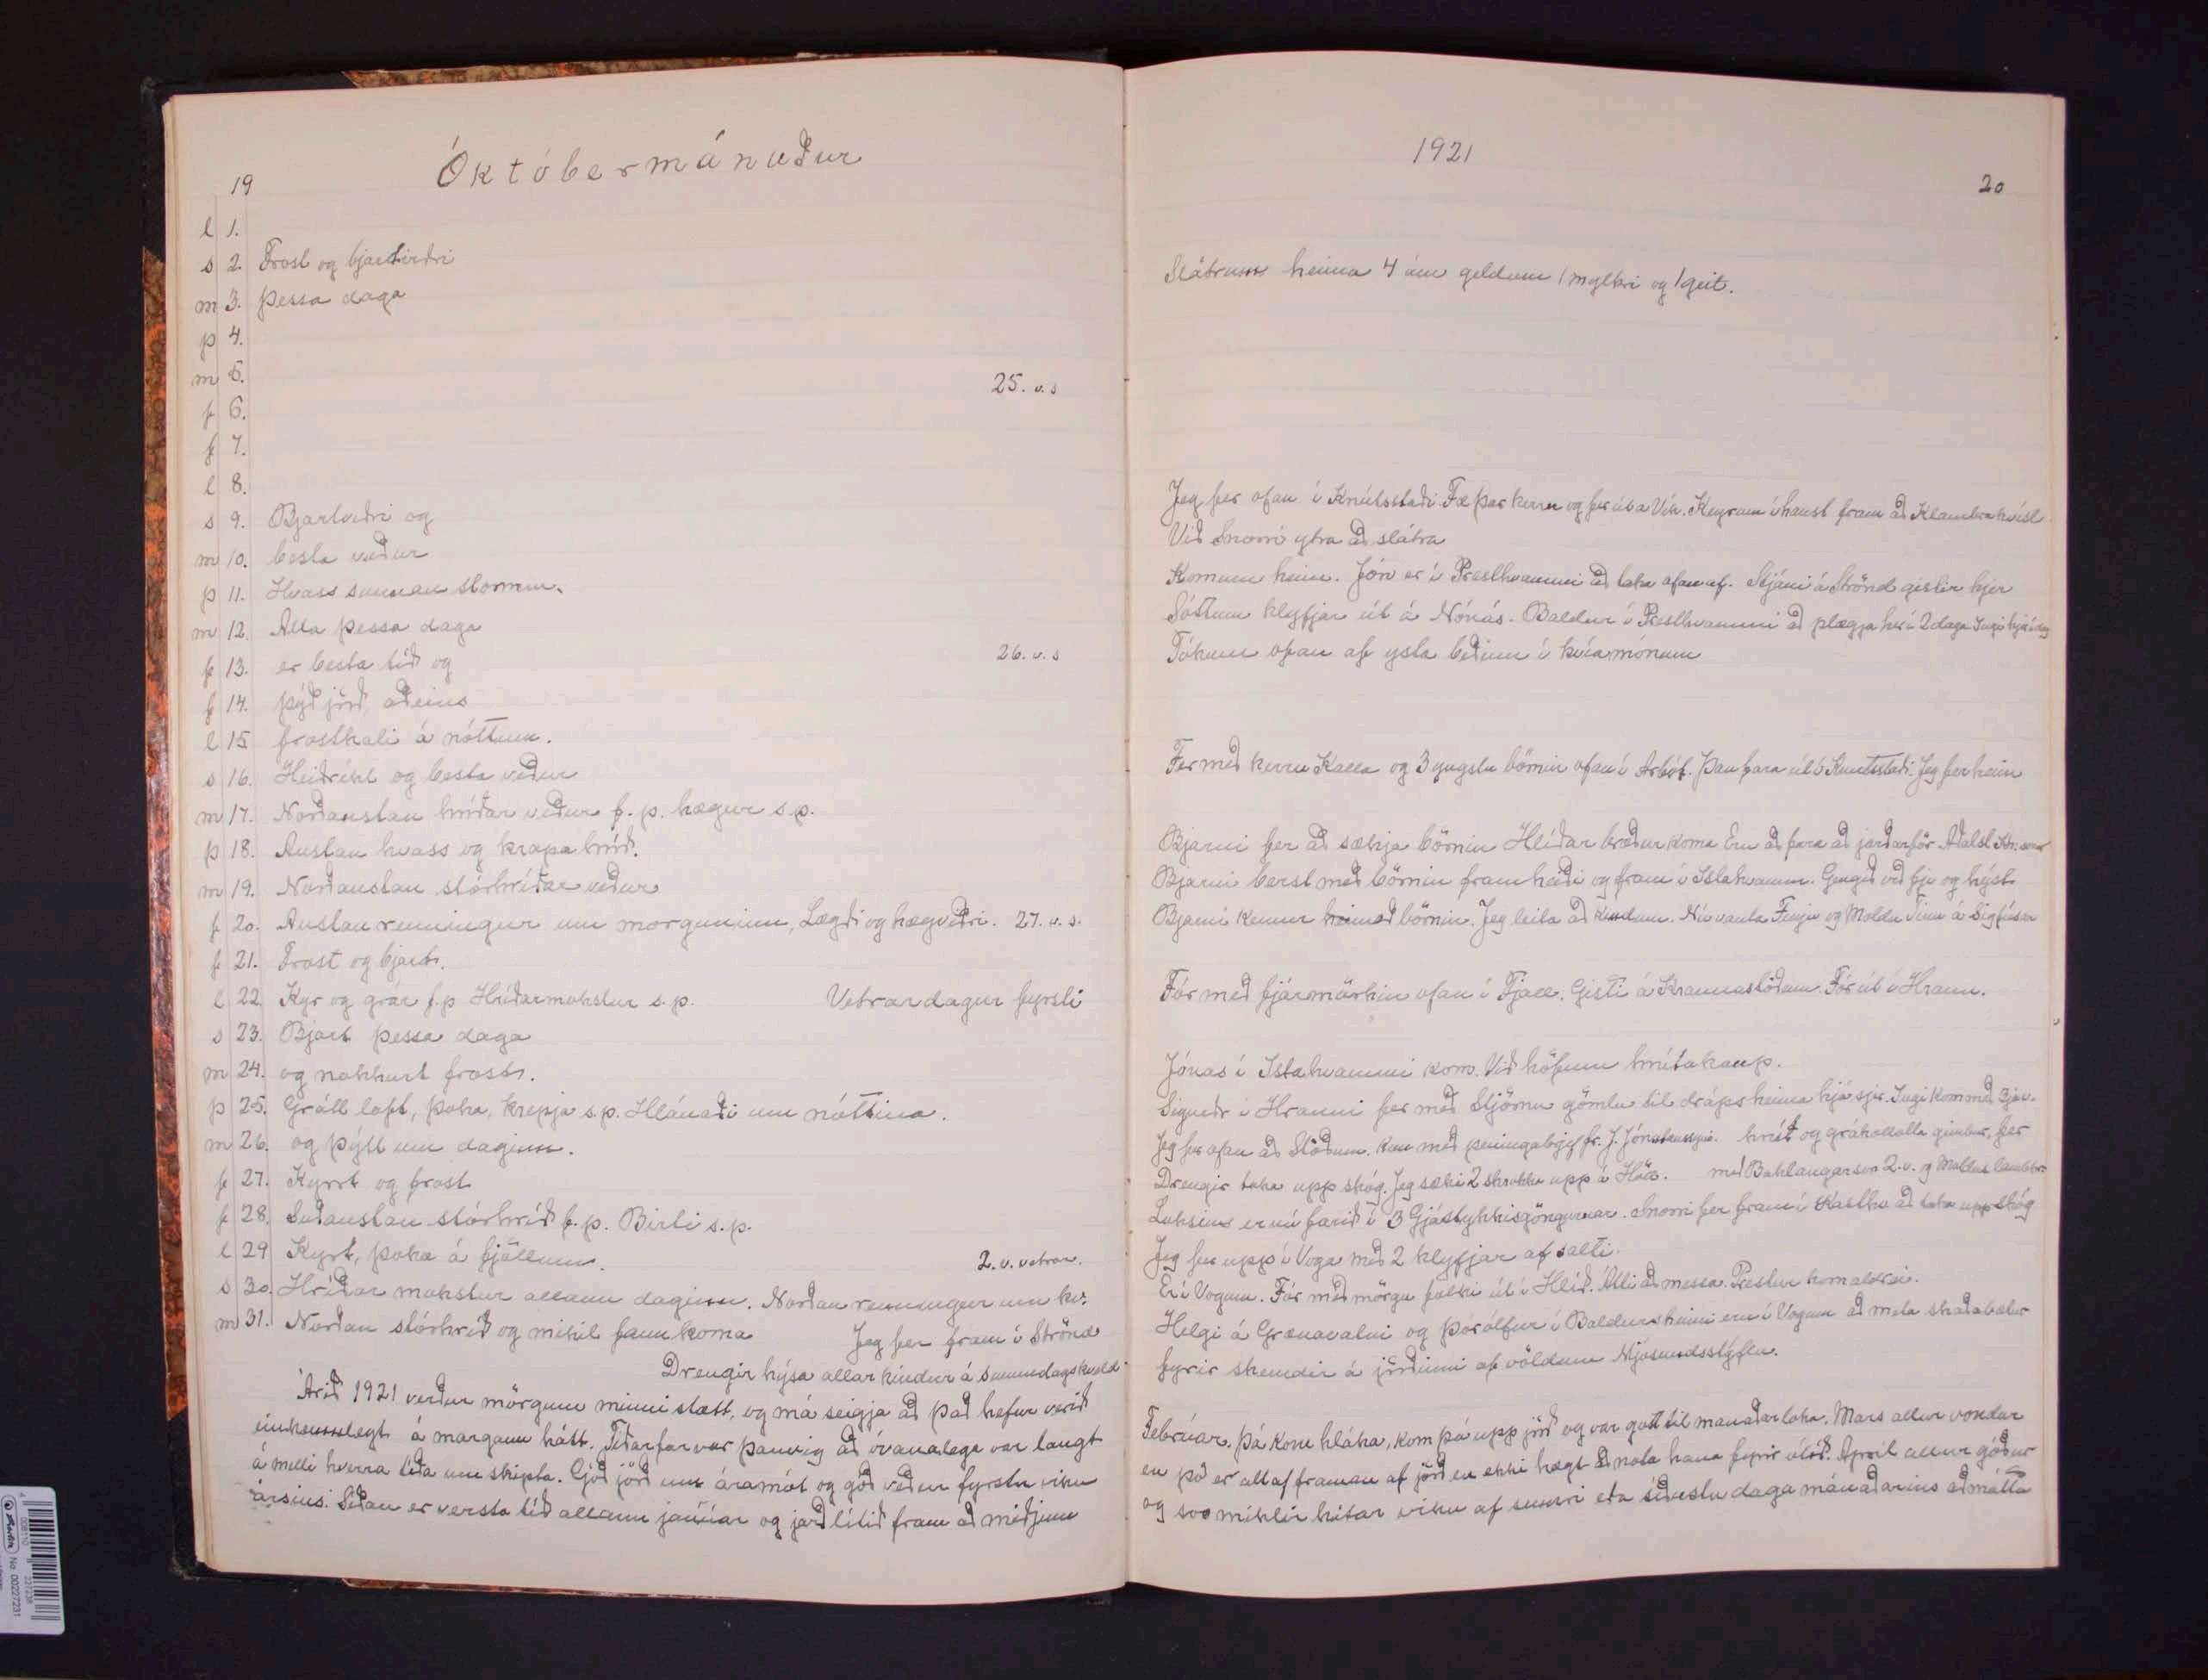 19
Októbermánuður
l 1.
s 2. Frost og bjartviðri
m 3. þessa daga
þ 4.
m 5. 25. v. s
f 6.
f 7.
l 8.
s 9. Bjartviðri og
m 10. besta veður
þ 11. Hvass sunnan stormur.
m 12. Alla þessa daga
f 13. er besta tíð og 26. v. s
f 14. þýð jörð, aðeins
l 15 frostkali á nóttum.
s 16. Heiðríkt og besta veður
m 17. Norðaustan hríðar veður f. p. hægur s. p.
þ 18. Austan hvass og krapahríð.
m 19. Norðaustan stórhríðar veður
f 20. Austan renningur um morguninn, Lægði og hægviðri. 27. v. s.
f 21. Frost og bjart.
l 22 Kyr og grár f. p Hríðarmokstur s. p. Vetrardagur fyrsti
s 23. Bjart þessa daga
m 24. og nokkurt frost.
þ 25. Gráll loft, þoka, krepja s. p. Hlánaði um nóttina.
m 26. og þýtt um daginn.
f 27. Kyrrt og frost
f 28. Suðaustan stórhríð f. p. Birti s. p.
l 29 Kyrt, þoka á fjöllum. 2. v. vetrar.
s 30. Hríðar mokstur allann daginn. Norðan renningur um kv.
m 31. Norðan stórhríð og mikil fannkoma Jeg fer fram í Strönd
Drengir hýsa allar kindur á sunnudagskveld
Árið 1921 verður mörgum minni stætt, og má seigja að það hefur verið
einkennslegt á margann hátt. Tíðarfar var þannig að óvanalega var langt
á milli hverra tíða um skipta. Góð jörð um áramót og góð veður fyrstu viku
ársins. Síðan er versta tíð allann janúar og jarðlítið fram að miðjum
1921
20
Slátrum heima 4 ám geldum 1 mylkri og 1 geit.
Jeg fer ofan í Knútsstaði. Fæ þar kerru og fer út á Vík. Keyrum í haust fram að Klambrahvísl
Við Snorri ytra að slátra
Komum heim. Jón er í Presthvammi að taka ofan af. Stjáni á Strönd gistir hjer
Sóttum klyfjar út á Nónás. Baldur í Presthvammi að plægja her í 2 daga Ingi hjá í dag
Tókum ofan af ysta beðinn í kvíamónum
Fer með kerru Kalla og 3 yngstu börnin ofan í Árbót. Þau fara út í Knutsstaði. Jeg fer heim
Bjarni fer að sækja börnin Hlíðar bræður koma Eru að fara að jarðarför Aðalst Kr.sonar
Bjarni berst með börnin fram heiði og fram í Istahvamm. Gengið við fje og hýst
Bjarni kemur heim með börnin. Jeg leita að kindum. Nú vanta Fenju og Moldu Finn á Sigfúsar
Fór með fjármörkin ofan í Fjall. Gisti á Krannastöðum. Fór út í Hraun.
Jónas í Istahvammi kom. Við höfum hrútakaup.
Sigurðr í Hrauni fer með Stjörnu gömlu til dráps heima hjá sjer. Ingi kom með Bjar.
Jeg fer ofan að Stöðum. kom með peningabrjef fr. J. Jónatanssyni. hrút og gráhosótta gimbur, fer
Drengir taka upp skóg. Jeg sæki 2 skrokka upp á Háa. með Bakkangarson 2. v. og Moldus lambhr.
Loksins er nú farið í 3 Gjástykkisgöngurnar. Snorri fer fram í Kasthv að taka upp skóg
Jeg fer upp í Voga með 2 klyfjar af salti.
Er í Vogum. Fór með mörgu fólki út í Hlíð. Átti að messa. Prestur kom aldrei.
Helgi á Grænavatni og Þórólfur í Baldursheimi eru í Vogum að meta skaðabætur
fyrir skemdir á jörðinni af völdum Mjósundsstýflu.
Februar. Þá kom hláka, kom þá upp jörð og var gott til manaðarloka. Mars allur vondur
en þó er alltaf framan af jörð en ekki hægt að nota hana fyrir ótíð. Apríl allur góður
og svo miklir hitar viku af sumri eða síðustu daga mánaðarins að mátta